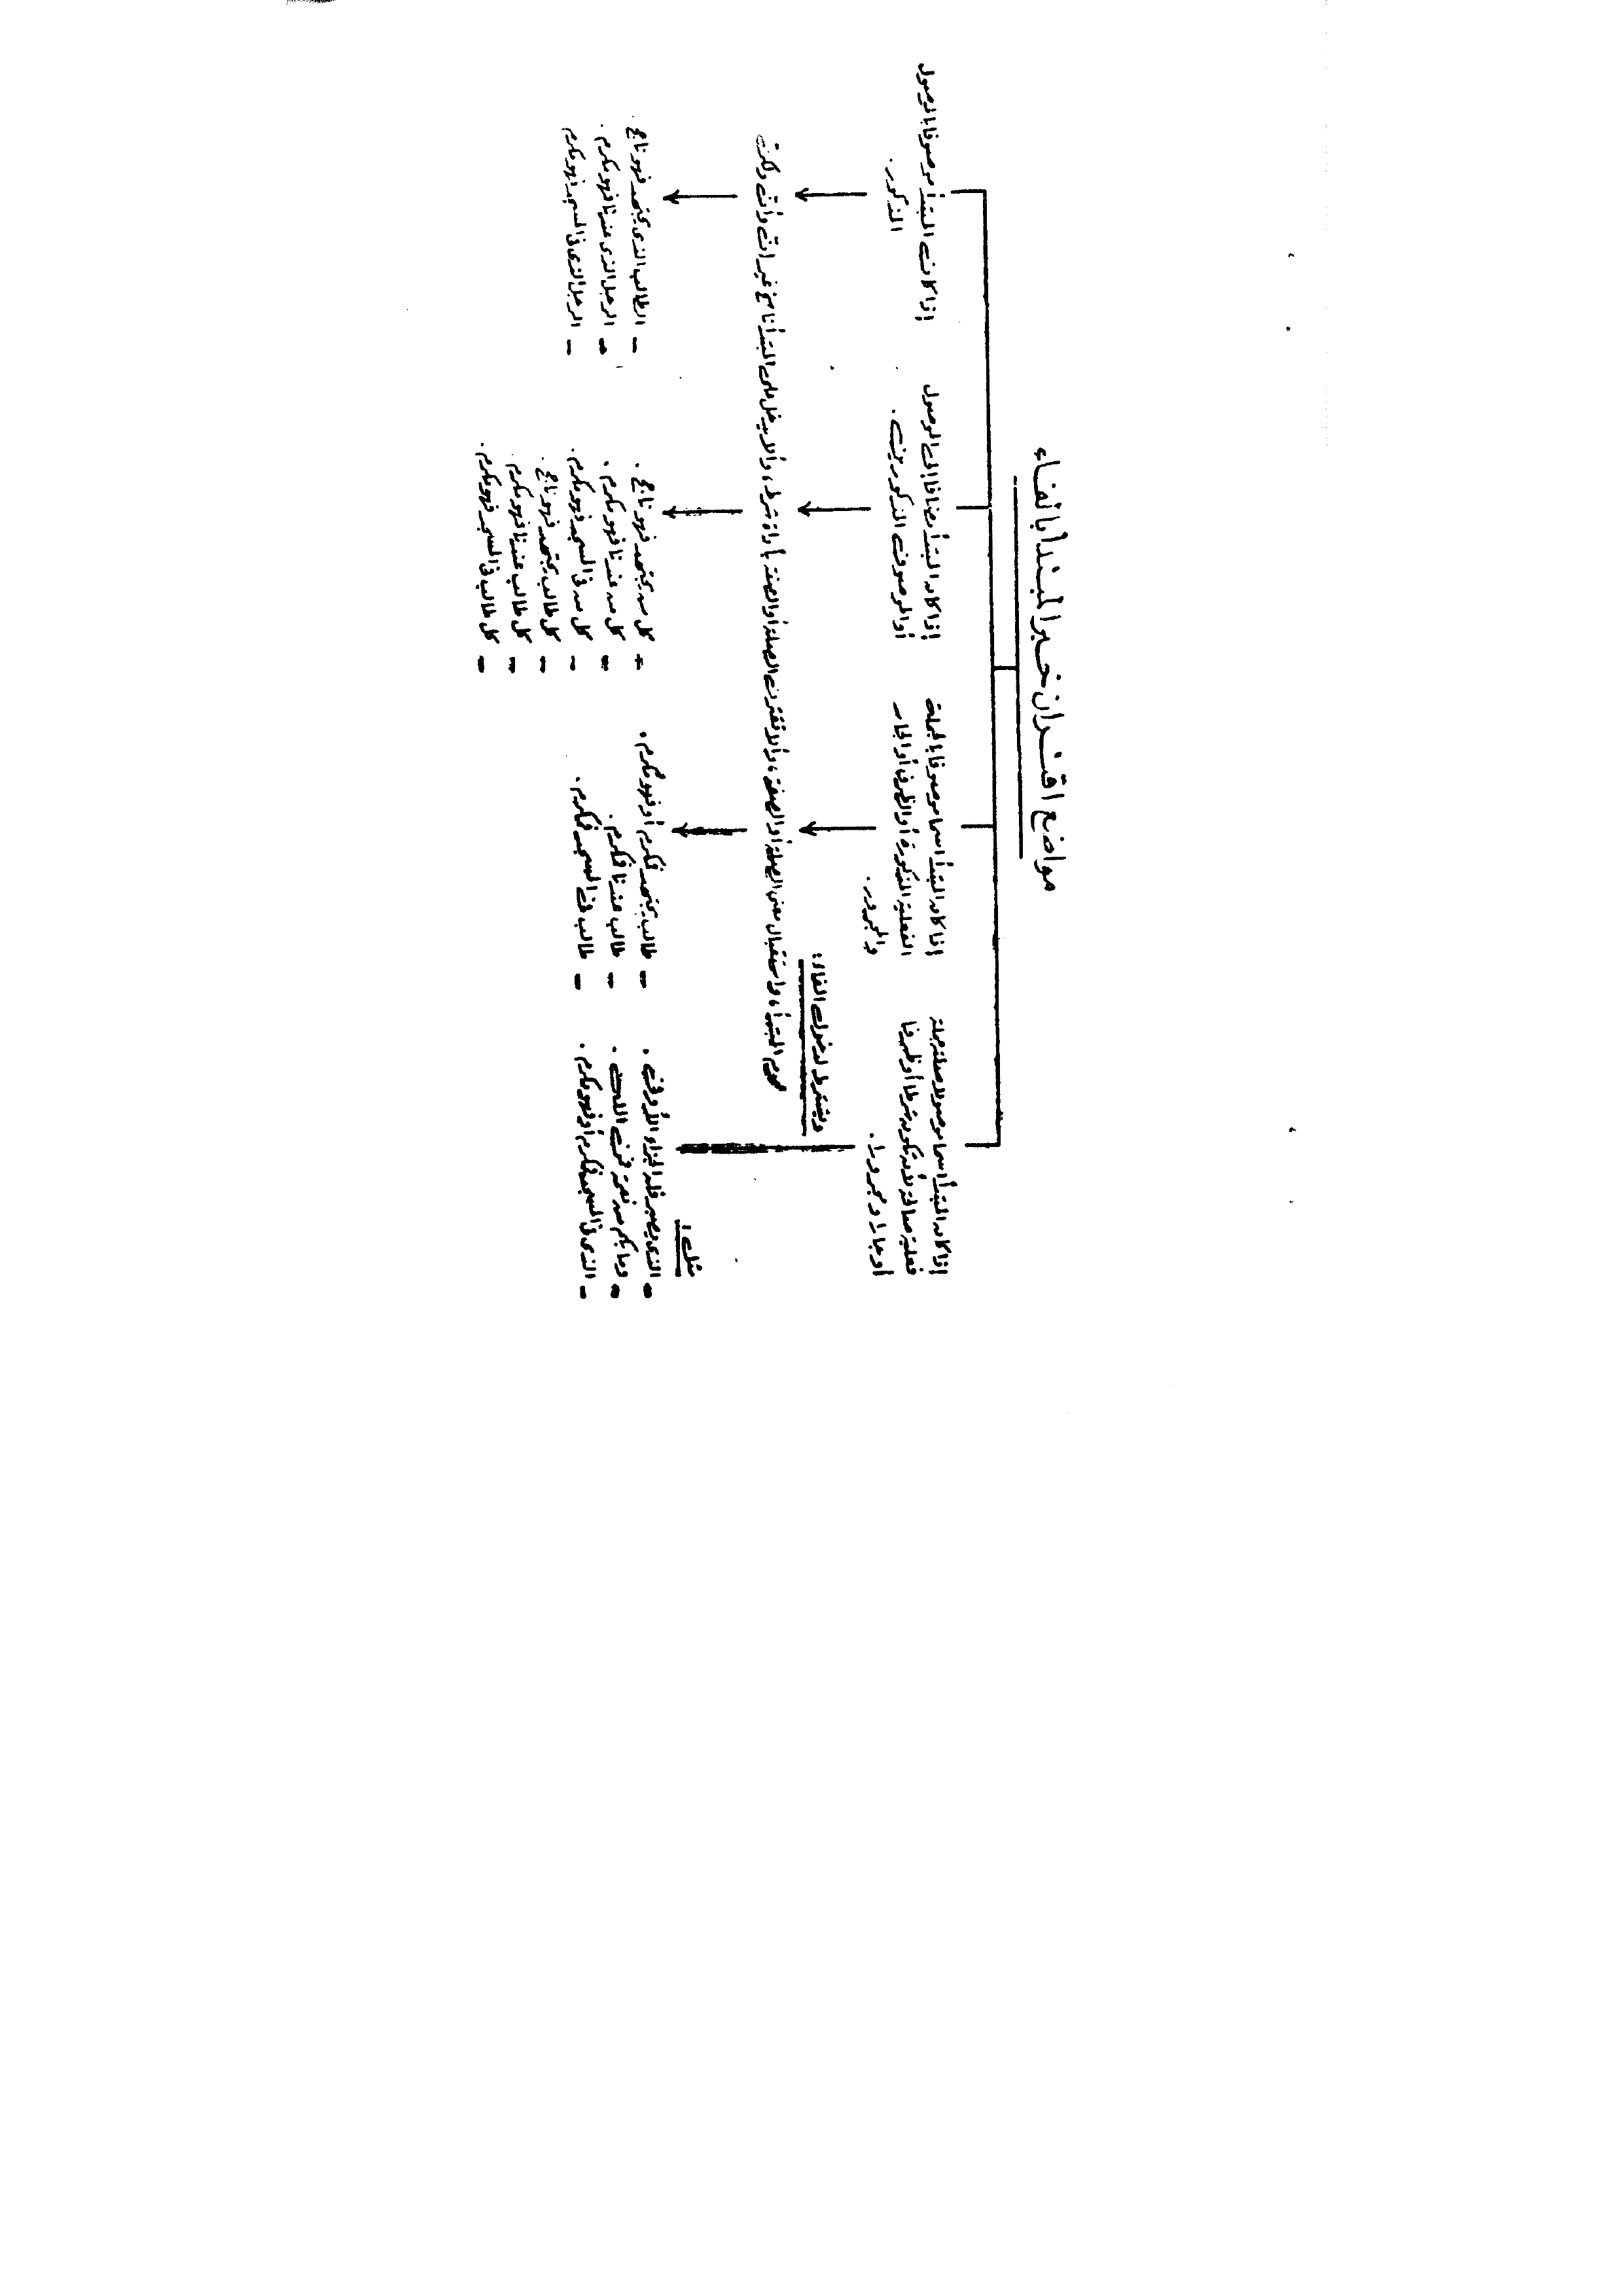 مواضع اقتران خبر المبتدأ بالفاء
إذا كان المبتدأ اسما موصولا صلته جملة
فعلية صالحة لأن تكون شرطا أو ظرفا
أو جارا ومجرورا .
إذا كان المبتدأ اسما موصوفا بالجملة
الفعلية المذكورة أو الظرف أو الجار
والمجرور .
إذا كان المبتدأ مضافا إلى الموصول
أو الموصوف المذكورين .
إذا كان المبتدأ موصوفا بالموصول
المذكور .
ويشترط لدخول الفاء :
عموم المبتدأ ، واستقبال معنى الصلة أو الصفة ، وألا تقترن الصلة أو الصفة بأداة شرط ، وألا يدخل على المبتدأ ناسخ غير إنّ وأنّ ولكنّ
مثل :
- الذي يصبر فله الجزاء الأوفى .
- وما بكم من نعمة فمن الله .
- الذي في المسجد فمكرم أو فهو مكرم .
- طالب يجتهد فمكرم أو فهو مكرم .
- طالب عندنا فمكرم .
- طالب في المسجد فمكرم .
- كل من يجتهد فهو ناجح .
- كل من عندنا فهو مكرم .
- كل من في المسجد فهو مكرم .
- كل طالب يجتهد فهو ناجح .
- كل طالب عندنا فهو مكرم .
- كل طالب في المسجد فهو مكرم .
- الطالب الذي يجتهد فهو ناجح .
- الرجل الذي عندنا فهو مكرم .
- الرجل الذي في المسجد فهو مكرم